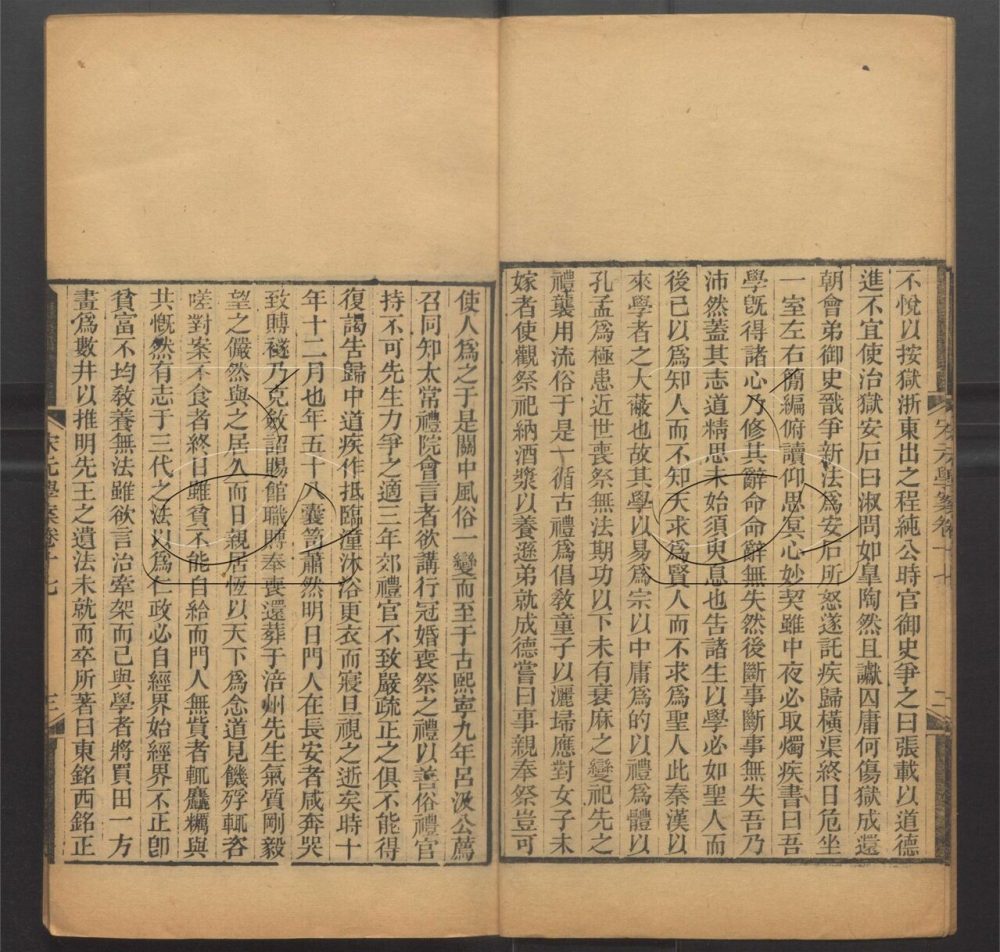 不悅以按獄浙東出之程純公時官御史爭之曰張載以道德
進不宜使治獄安石曰淑問如臯陶然且讞囚庸何傷獄成還
朝會弟御史戩爭新法爲安石所怒遂託疾歸橫渠終日危坐
一室左右簡編俯讀仰思冥心妙契雖中夜必取燭疾書曰吾
學旣得諸心乃修其辭命命辭無失然後斷事斷事無失吾乃
沛然蓋其志道精思未始須臾息也告諸生以學必如聖人而
後已以爲知人而不知天求爲賢人而不求爲聖人此秦漢以
來學者之大蔽也故其學以易爲宗以中庸爲的以禮爲體以
孔孟爲極患近世喪祭無法期功以下未有衰麻之變祀先之
禮襲用流俗于是一循古禮爲倡敎童子以灑埽應對女子未
嫁者使觀祭祀納酒漿以養遜弟就成德嘗曰事親奉祭豈可
宋元學案卷十七
二
使人爲之于是關中風俗一變而至于古熙寧九年呂汲公薦
召同知太常禮院會言者欲講行冠婚喪祭之禮以善俗禮官
持不可先生力爭之適三年郊禮官不致嚴疏正之俱不能得
復謁告歸中道疾作抵臨潼沐浴更衣而寢旦視之逝矣時十
年十二月也年五十八囊笥蕭然明日門人在長安者咸奔哭
致賻襚乃克斂詔賜館職賻奉喪還葬于涪州先生氣質剛毅
望之儼然與之居久而日親居恆以天下爲念道見饑殍輒咨
嗟對案不食者終日雖貧不能自給而門人無貲者輒麤糲與
共慨然有志于三代之法以爲仁政必自經界始經界不正卽
貧富不均敎養無法雖欲言治牽架而已與學者將買田一方
畫爲數井以推明先王之遺法未就而卒所著曰東銘西銘正
宋元學案卷十七
三